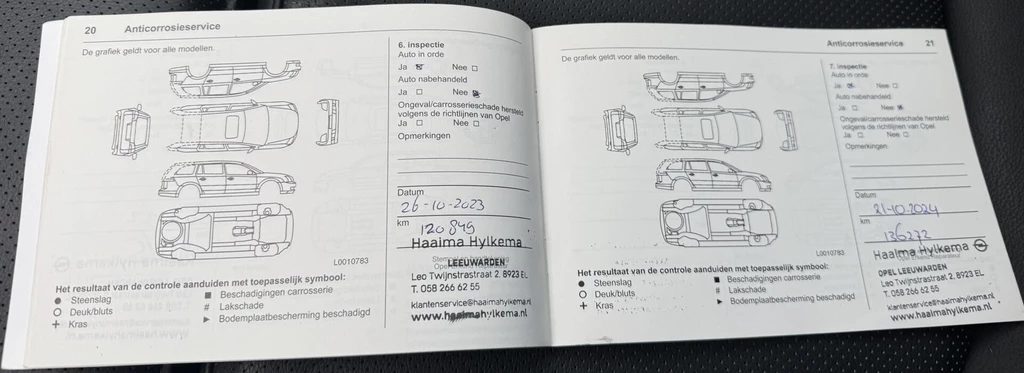 20 Anticorrosieservice
De grafiek geldt voor alle modellen.
L0010783
Het resultaat van de controle aanduiden met toepasselijk symbool:
● Steenslag
O Deuk/bluts
+ Kras
■ Beschadigingen carrosserie
# Lakschade
► Bodemplaatbescherming beschadigd
6. inspectie
Auto in orde
Ja ☒ Nee □
Auto nabehandeld
Ja □ Nee ☒
Ongeval/carrosserieschade hersteld
volgens de richtlijnen van Opel
Ja □ Nee □
Opmerkingen
Datum
26-10-2023
km
120849
Haaima Hylkema
LEEUWARDEN
Leo Twijnstrastraat 2, 8923 EL
T. 058 266 62 55
klantenservice@haaimahylkema.nl
www.haaimahylkema.nl
Anticorrosieservice 21
De grafiek geldt voor alle modellen.
L0010783
Het resultaat van de controle aanduiden met toepasselijk symbool:
● Steenslag
O Deuk/bluts
+ Kras
■ Beschadigingen carrosserie
# Lakschade
► Bodemplaatbescherming beschadigd
7. inspectie
Auto in orde
Ja ☒ Nee □
Auto nabehandeld
Ja □ Nee ☒
Ongeval/carrosserieschade hersteld
volgens de richtlijnen van Opel
Ja □ Nee □
Opmerkingen
Datum
21-10-2024
km
136272
Haaima Hylkema
OPEL LEEUWARDEN
Leo Twijnstrastraat 2, 8923 EL
T. 058 266 62 55
klantenservice@haaimahylkema.nl
www.haaimahylkema.nl